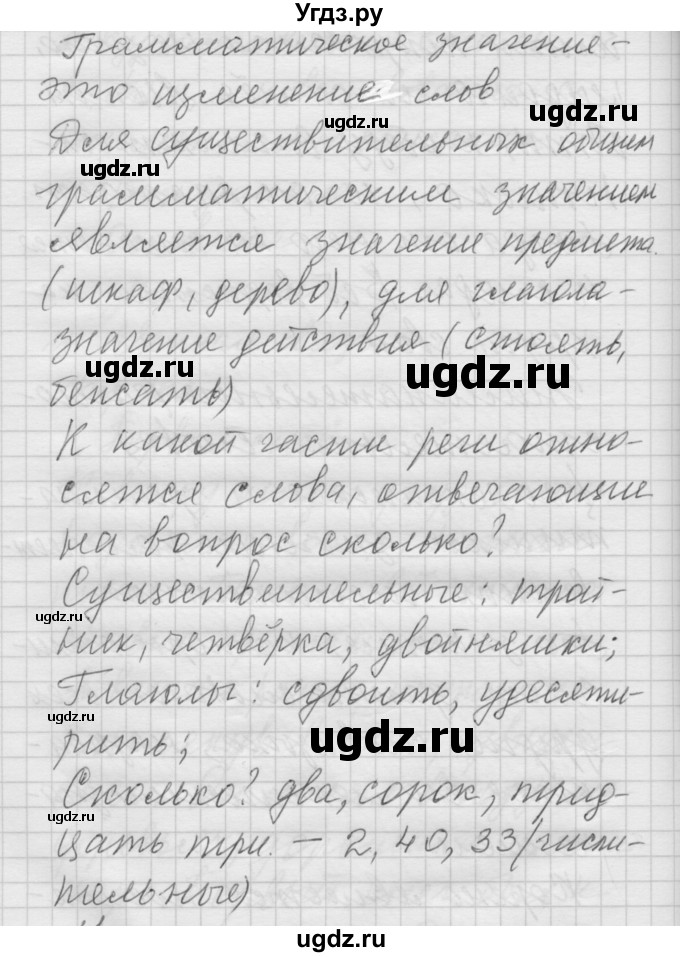 Угдз.ру
Грамматическое значение –
это изменение слов
Для существительных общим
грамматическим значением
является значение предмета.
(шкаф, дерево), для глагола –
значение действия (стоять,
бежать)
К какой части речи отно-
сятся слова, отвечающие
на вопрос сколько?
Существительные: трой-
ник, четвёрка, двойняшки;
Глаголы: сдвоить, удесяте-
рить;
Сколько? два, сорок, трид-
цать три. – 2, 40, 33 (числи-
тельные)
ugdz.ru
ugdz.ru
ugdz.ru
ugdz.ru
ugdz.ru
ugdz.ru
ugdz.ru
ugdz.ru
ugdz.ru
ugdz.ru
ugdz.ru